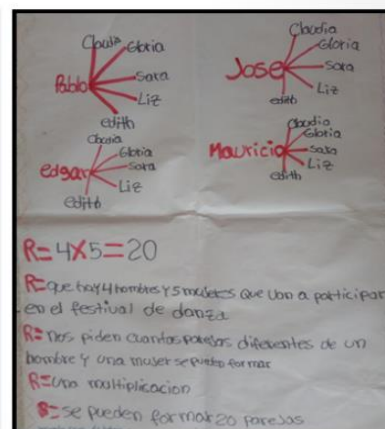 Claudia
Gloria
Pablo
Sara
Liz
edith
Claudia
Gloria
Jose
Sara
Liz
edith
Claudia
Gloria
edgar
Sara
Liz
edith
Claudia
Gloria
Mauricio
Sara
Liz
edith
R=4x5=20
R= que hay 4 hombres y 5 mujeres que van a participar
en el festival de danza
R= nos piden cuantas parejas diferentes de un
hombre y una mujer se puede formar
R= una multiplicacion
R= se pueden formar 20 parejas